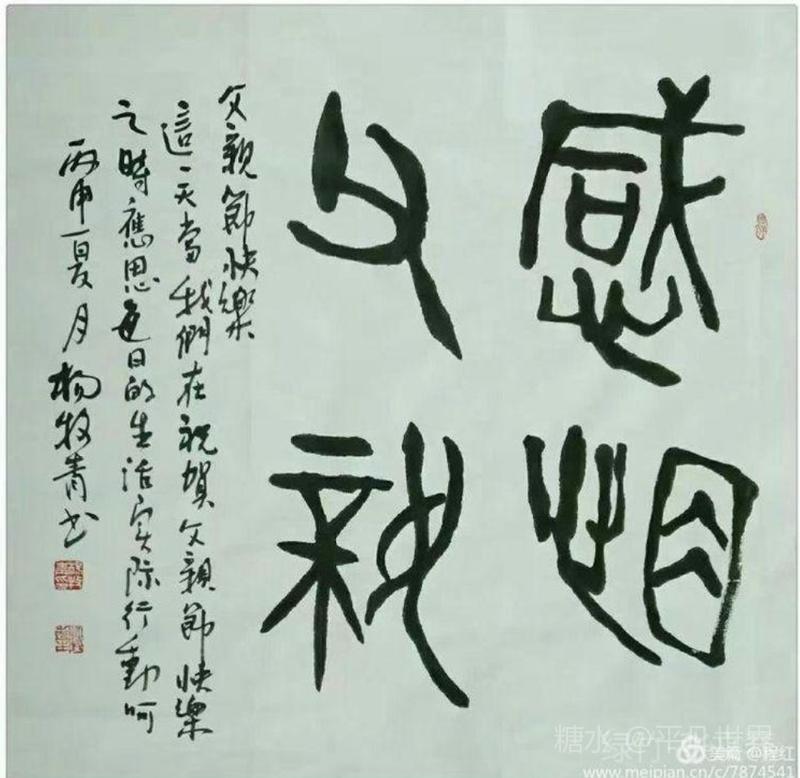 感恩
父親
父親節快樂
這一天當我們在祝賀父親節快樂
之時應思每日的生活实际行動呵
丙申夏月杨牧青书
糖水 @平凡世界
美篇 @程红
www.meipian.cn/c/7874541